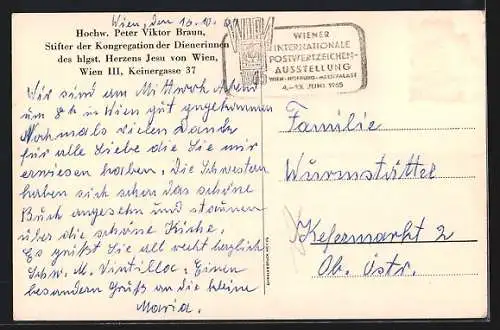 Wien, den 13.10.
Hochw. Peter Viktor Braun,
Stifter der Kongregation der Dienerinnen
des hlgst. Herzens Jesu von Wien,
Wien III, Keinergasse 37
WIENER
INTERNATIONALE
POSTWERTZEICHEN-
AUSSTELLUNG
WIEN-HOFBURG-MESSEPALAST
4.-13. JUNI 1965
Wir sind am Mittwoch Abend
um 8h in Wien gut angekommen
Nochmals vielen Dank
für alle Liebe die Sie mir
erwiesen haben. Die Schwestern
haben sich schon das schöne
Buch angesehn und staunen
über die schöne Kirche.
Es grüßt Sie all recht herzlich
Schw. M. Einen
besondern Gruß an die kleine
Maria.
Familie
Wurmstättel
Kefermarkt 2
Ob. Östr.